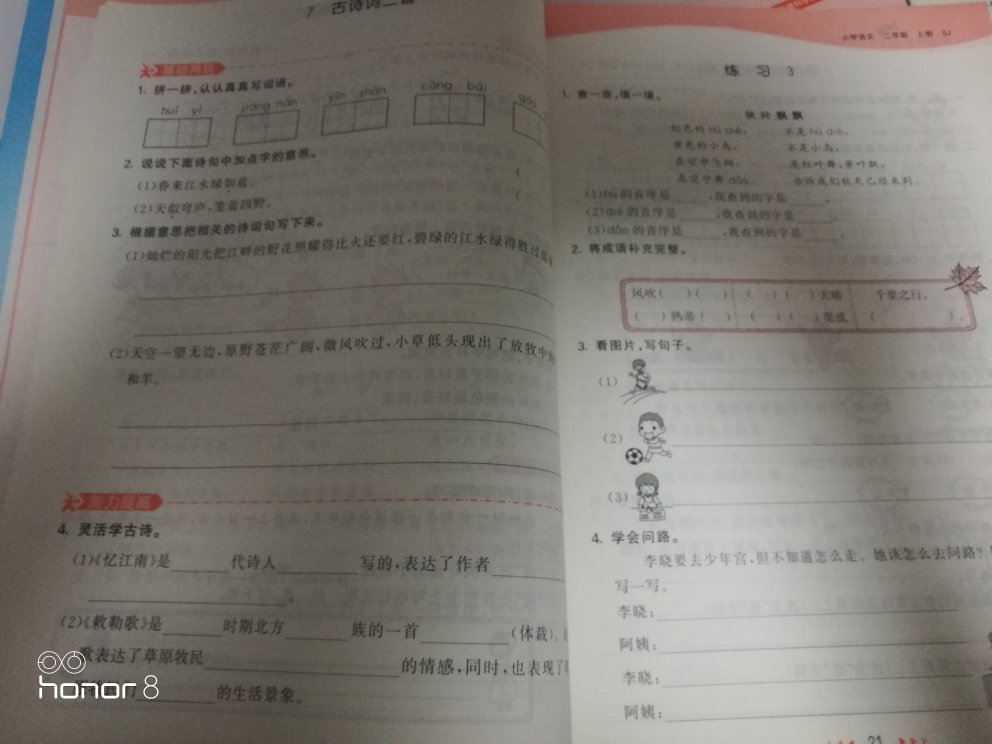 7 古诗词二首
基础巩固
1. 拼一拼,认认真真写词语。
huí yì jiāng nán yīn shān cāng bái gāo
2. 说说下面诗句中加点字的意思。
(1)春来江水绿如蓝。 (
(2)天似穹庐,笼盖四野。 (
3. 根据意思把相关的诗词句写下来。
(1)灿烂的阳光把江畔的野花照耀得比火还要红,碧绿的江水绿得胜过
(2)天空一望无边,原野苍茫广阔,微风吹过,小草低头现出了放牧中的
和羊。
能力提高
4. 灵活学古诗。
(1)《忆江南》是 代诗人 写的,表达了作者
。
(2)《敕勒歌》是 时期北方 族的一首 (体裁),
歌表达了草原牧民 的情感,同时,也表现了
的生活景象。
honor 8
小学语文 二年级 上册 SJ
练习 3
1. 查一查,填一填。
秋叶飘飘
红色的 hú dié, 不是 hú dié,
黄色的小鸟, 不是小鸟,
在空中飞翔。 是红叶舞,黄叶飘,
在空中舞 dǎo。 告诉我们秋天已经来到。
(1)hú 的音序是 ,我查到的字是 。
(2)dié 的音序是 ,我查到的字是 。
(3)dǎo 的音序是 ,我查到的字是 。
2. 将成语补充完整。
风吹( )( ) ( )( )天晴 千里之行,
( )熟蒂( ) ( )( )渠成 ( )。
3. 看图片,写句子。
(1)
(2)
(3)
4. 学会问路。
李晓要去少年宫,但不知道怎么走。她该怎么去问路?
写一写。
李晓:
阿姨:
李晓:
阿姨:
21